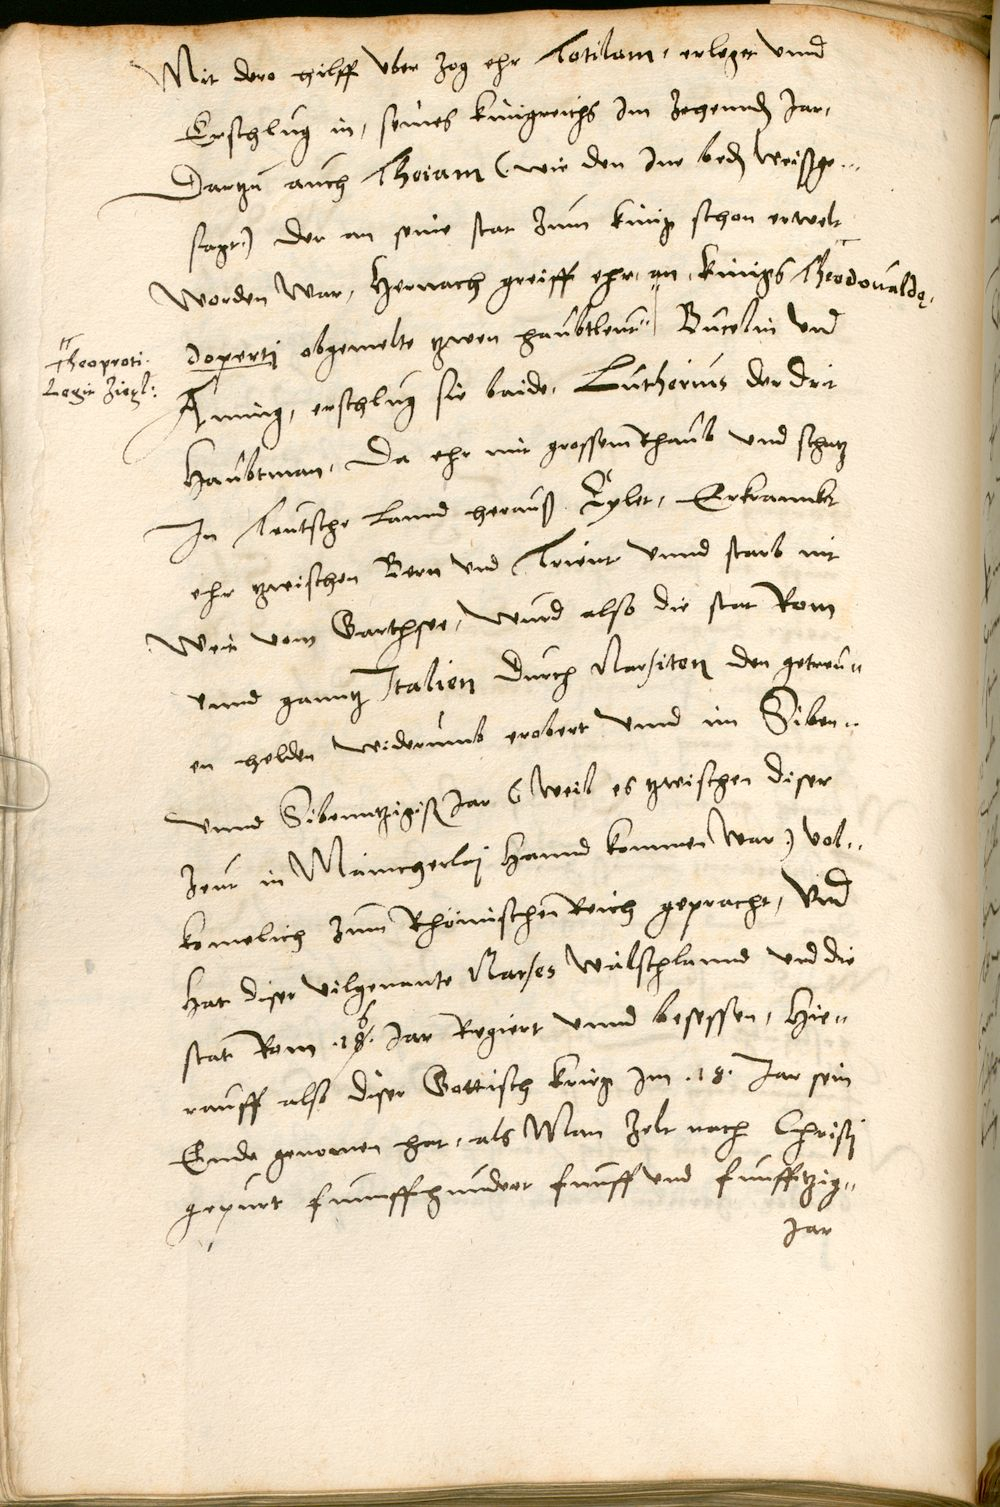 Mit dero hilff vber zog ehr Totilam, erleget vnnd
Erschlug in, seines künigreichs Im Zehenndn Jar,
Dartzu auch Theiam (wie den Ine bede Weißge-
sagt) der an seine stat zum künig schon erwelt
Worden War, Hernach greiff ehr an, künigs Theodoualdo,
doperti obgemelte tzwen haubtleut Bucelin vnd
Theoproti.
Legit Ziegl:
Aming, erschlug sie baide, Lutherius der drit
Haubtman, Da ehr mit grossem Rhaub vnd schatz
In Teutsche Lannd herauß Eylet, Erkrannckt
ehr tzwischen Bern vnd Trient vnnd starb nit
Weit vom Garthsee, Wurd also die stat Rom
vnnd ganntz Italien durch Narsiten den getreu-
en helden widerumb erobert vnnd im Siben-
vnnd Sibenntzigist Jar (Weil es tzwischen diser
Zeit in Maincherlej Hannd kommen War) vol-
komelich zum Rhömischen Reich gepracht, Vnd
Hat diser vilgenante Narses Wälschlannd vnd die
stat Rom .18. Jar Regiert vnnd besessen, Hie-
rauff also diser Gottisch krieg Im .18. Jar sein
Ende genomen hat, als Man Zelt nach Christj
gepurt funnffhundert funff vnd funfftzig-
Jar